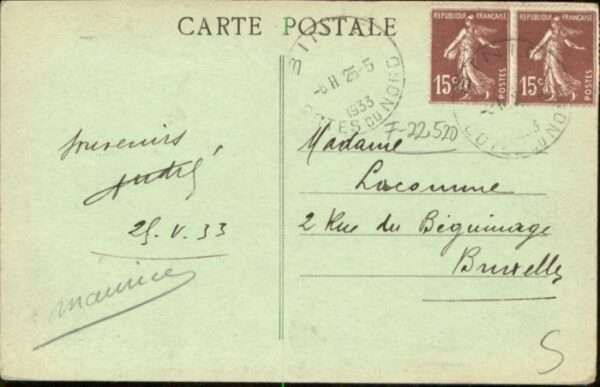 CARTE POSTALE
REPUBLIQUE FRANÇAISE
15c
POSTES
REPUBLIQUE FRANÇAISE
15c
POSTES
H 25-5
1933
DU NORD
7-22.520
souvenirs
André
25.V.33
maurice
Madame
Lacomme
2 Rue du Béguinage
Bruxelles